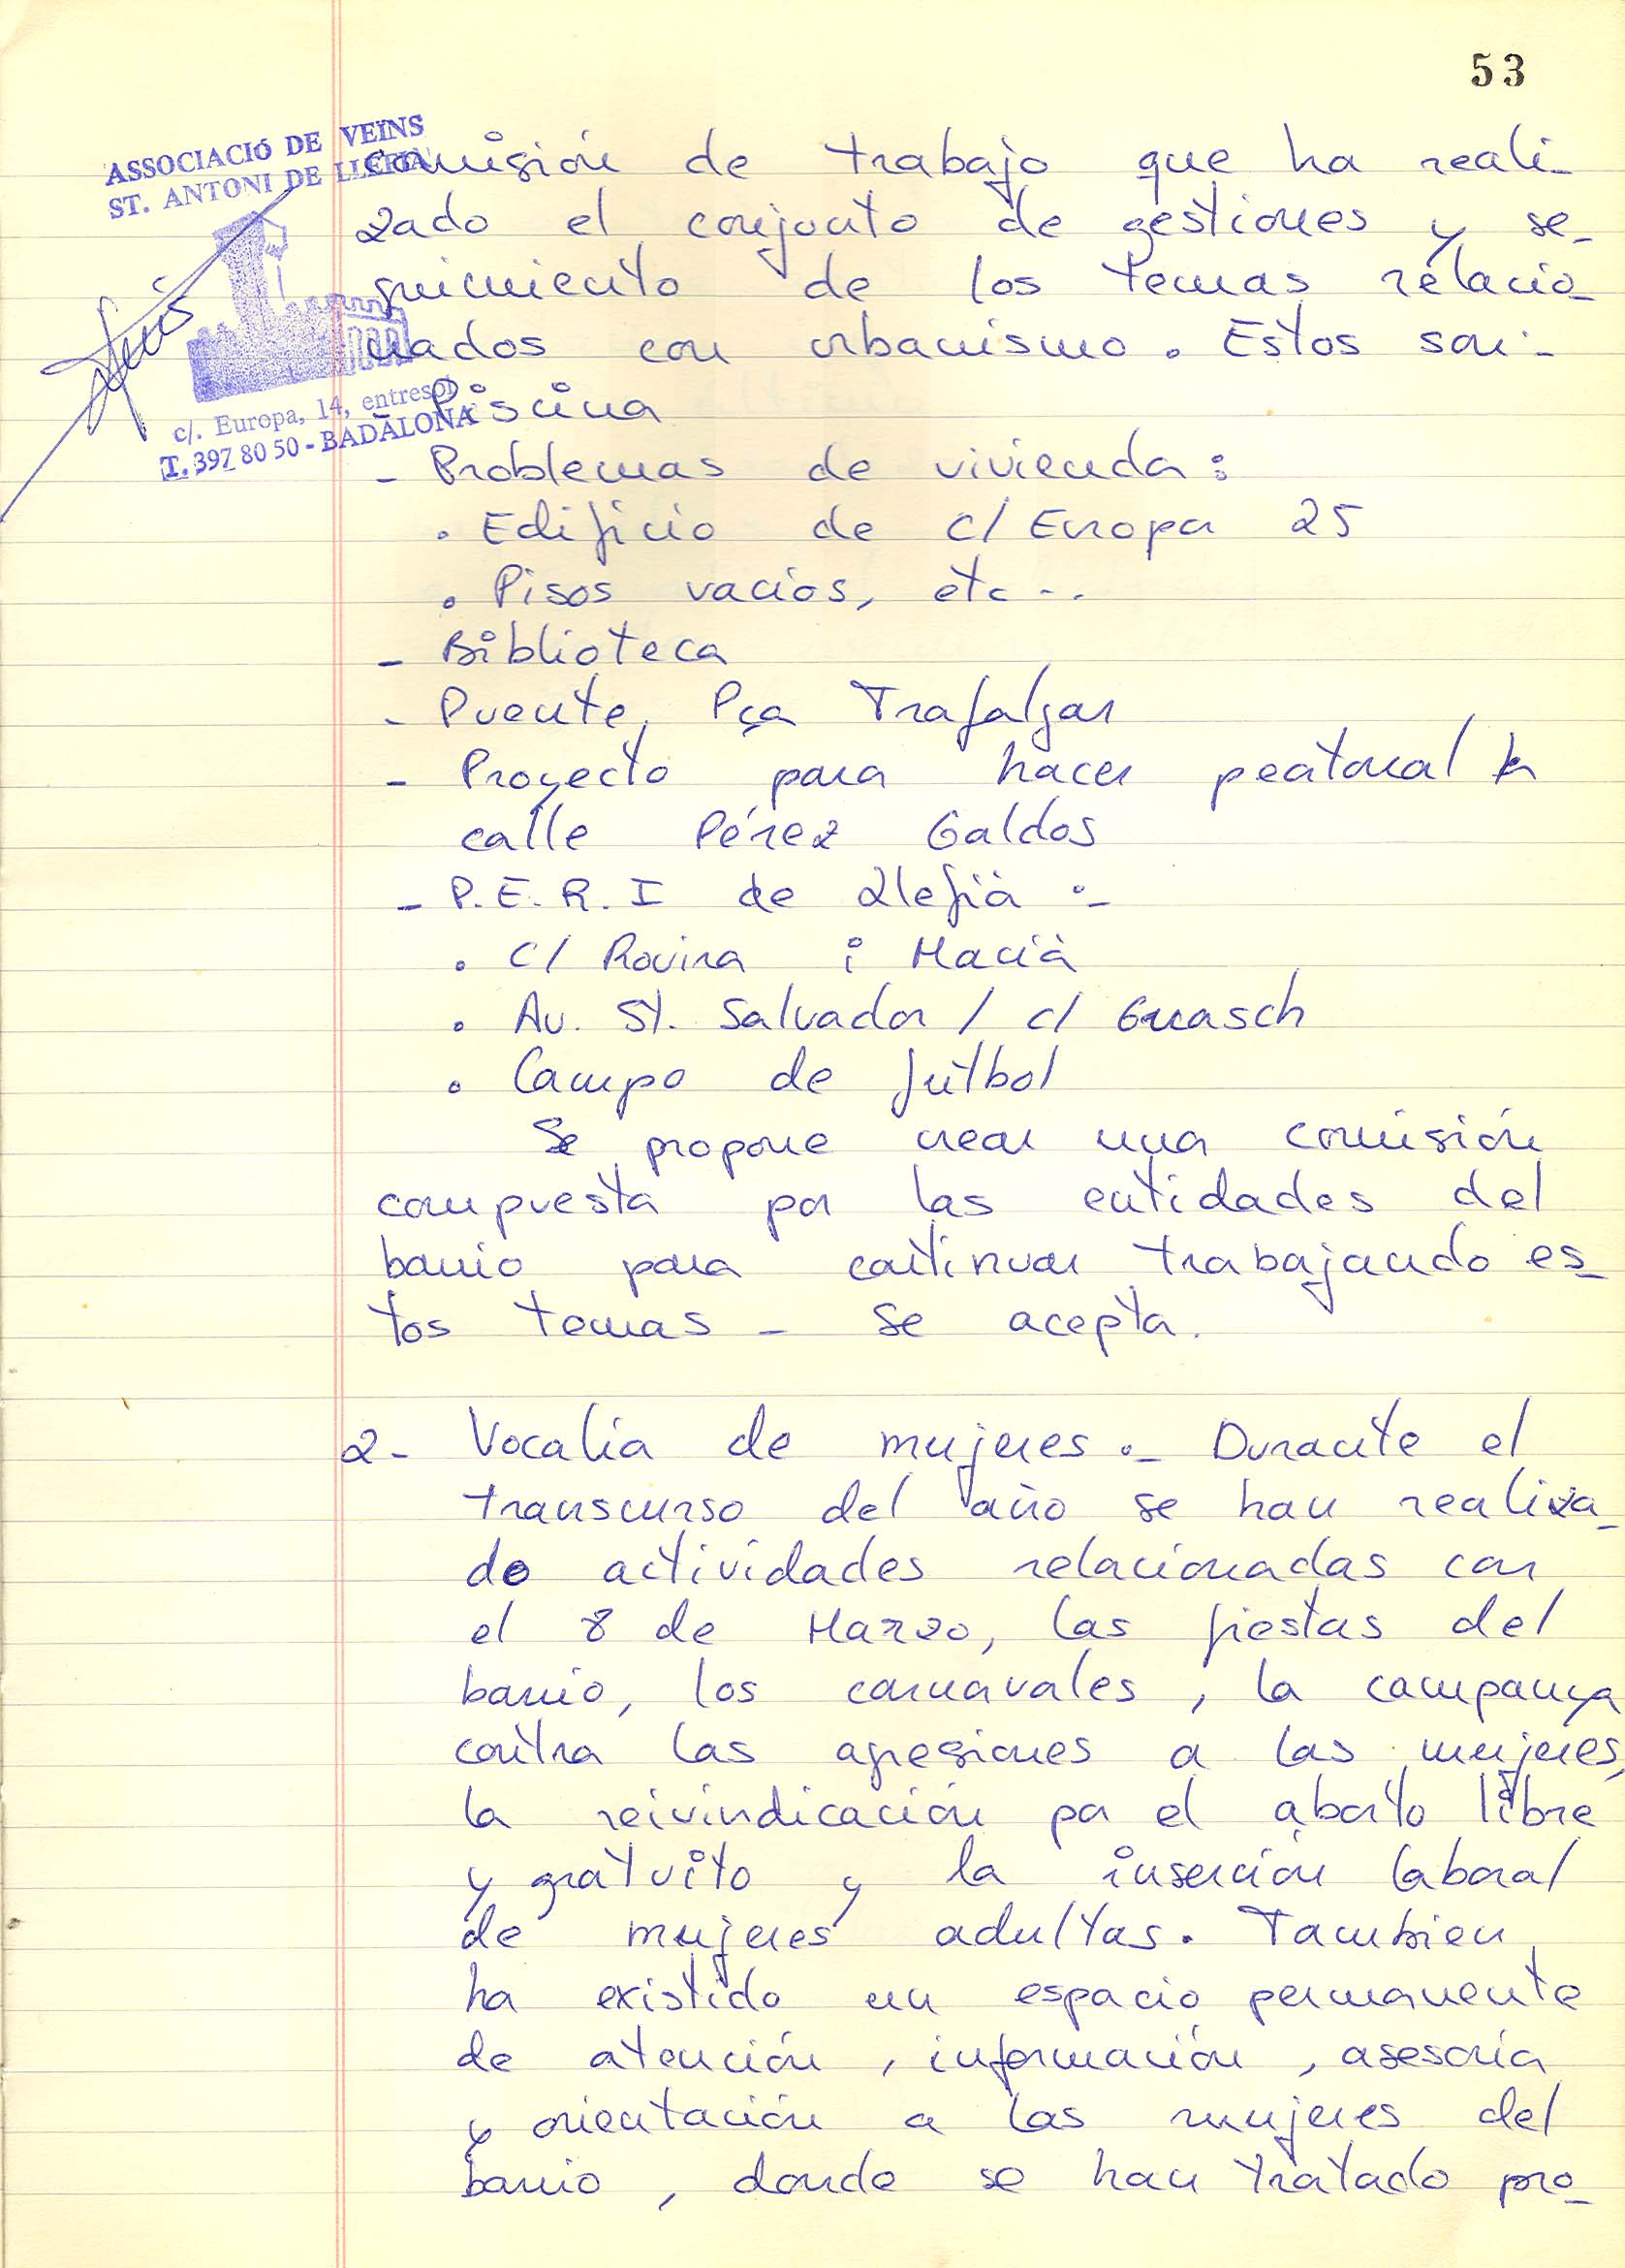 53
ASSOCIACIÓ DE VEÏNS
ST. ANTONI DE LLEFIÀ
c/. Europa, 14, entresol
T. 397 80 50 - BADALONA
comisión de trabajo que ha reali-
zado el conjunto de gestiones y se-
guimiento de los temas relacio-
nados con urbanismo. Estos son:-
Piscina
- Problemas de vivienda:
. Edificio de C/ Europa 25
. Pisos vacíos, etc...
- Biblioteca
- Puente, Pça Trafalgar
- Proyecto para hacer peatonal la
calle Pérez Galdos
- P.E.R.I de Llefià :-
. C/ Rovira i Macià
. Av. St. Salvador / c/ Guasch
. Campo de fútbol
Se propone crear una comisión
compuesta por las entidades del
barrio para continuar trabajando es-
tos temas - Se acepta.
2- Vocalia de mujeres.- Durante el
transcurso del año se han realiza-
do actividades relacionadas con
el 8 de Marzo, las fiestas del
barrio, los carnavales, la campanya
contra las agresiones a las mujeres,
la reivindicación por el aborto libre
y gratuito y la inserción laboral
de mujeres adultas. Tambien
ha existido un espacio permanente
de atención, información, asesoría
y orientación a las mujeres del
barrio, donde se han tratado pro-